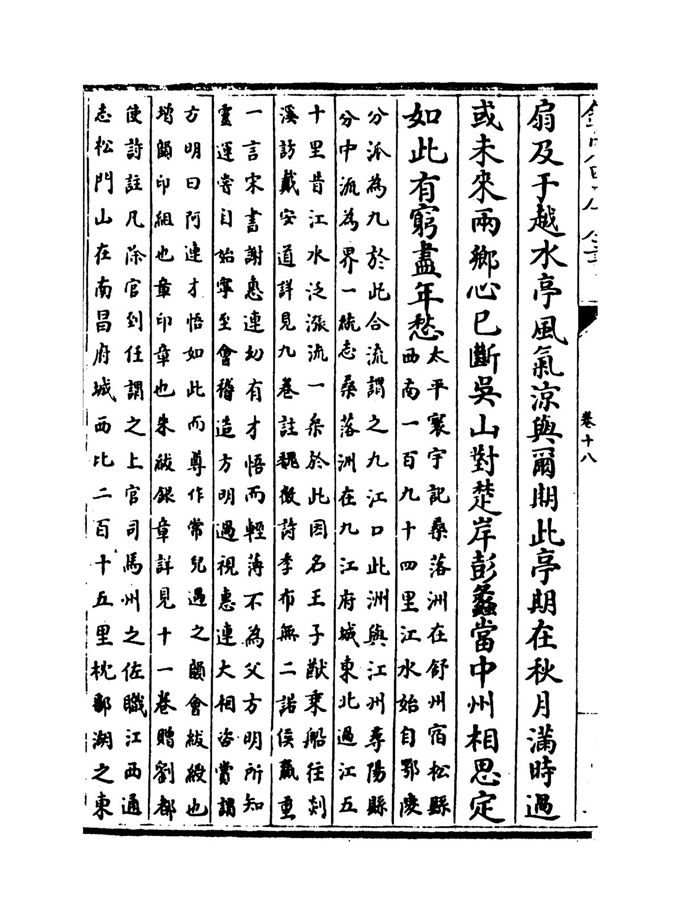 卷十八
扇及于越水亭風氣涼與爾期此亭期在秋月滿時過
或未來兩鄉心已斷吳山對楚岸彭蠡當中州相思定
如此有窮盡年愁
太平寰宇記桑落洲在舒州宿松縣
西南一百九十四里江水始自鄂陵
分派為九於此合流謂之九江口此洲與江州尋陽縣
分中流為界一統志桑落洲在九江府城東北過江五
十里昔江水泛漲流一槎於此因名王子猷乗船往剡
溪訪戴安道詳見九卷註魏徵詩季布無二諾侯嬴重
一言宋書謝惠連幼有才悟而輕薄不為父方明所知
靈運嘗自始寧至會稽造方明過視惠連大相咨賞謂
方明曰阿連才悟如此而尊作常兒遇之韻會紱綬也
增韻印組也章印章也朱紱銀章詳見十一卷贈劉都
使詩註凡除官到任謂之上官司馬州之佐職江西通
志松門山在南昌府城西北二百十五里枕鄱湖之東